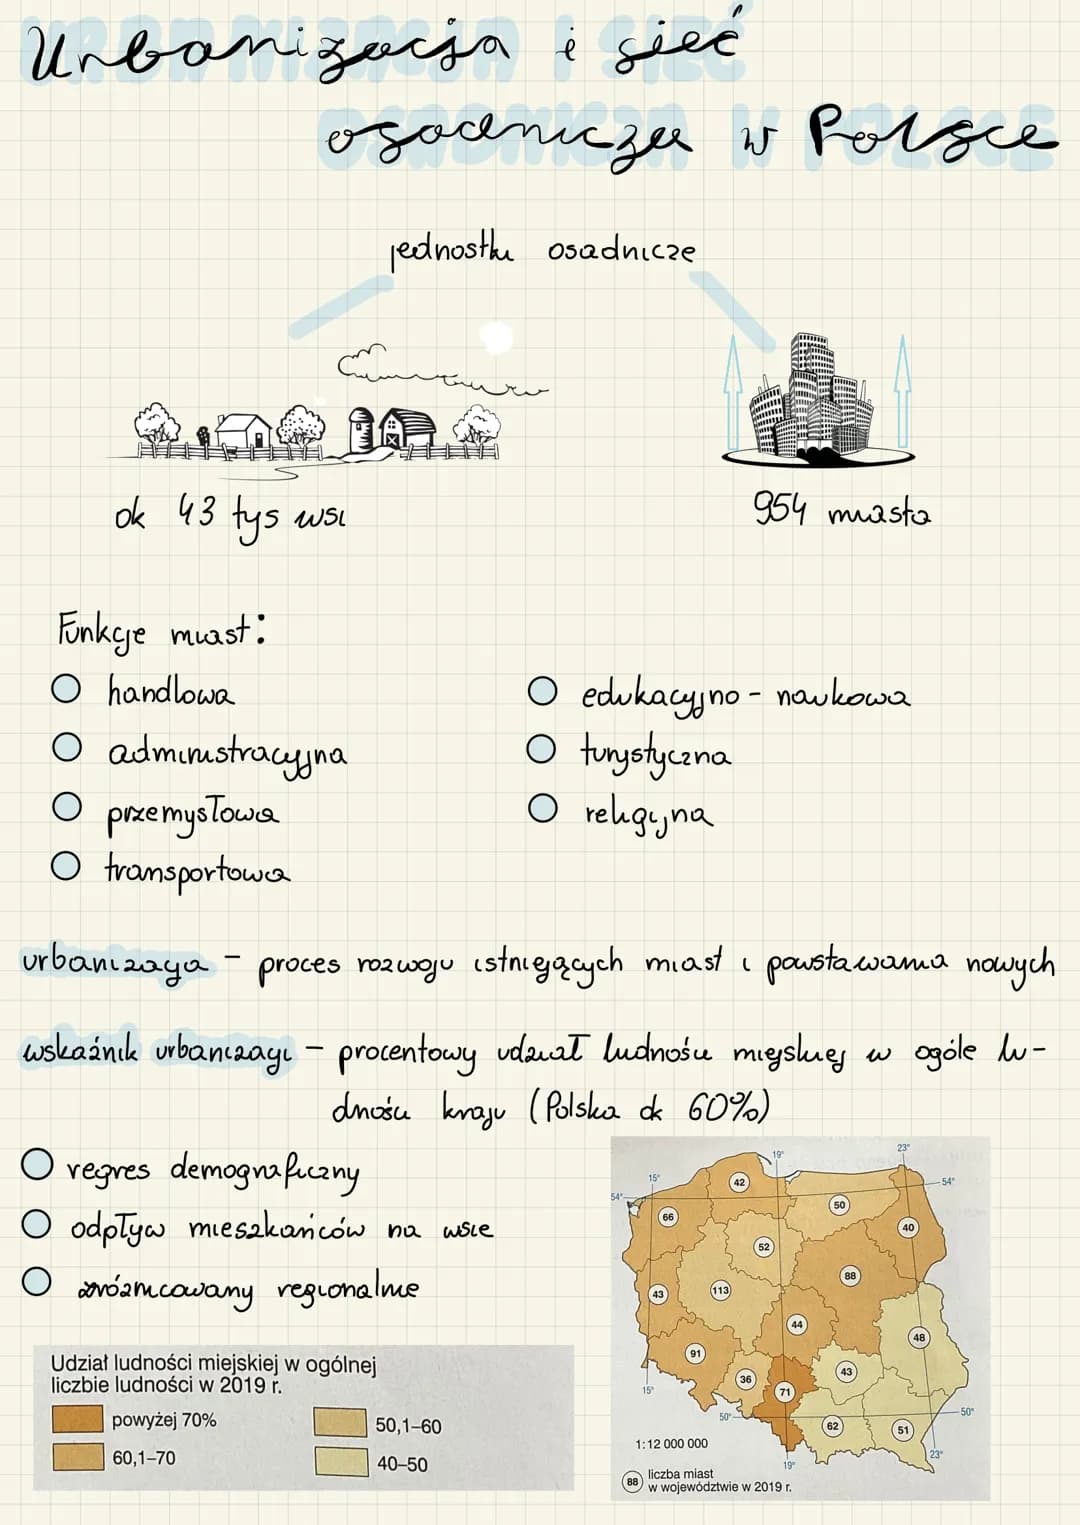 Urbanizacja i sieć
osadnicza w Polsce
jednostki osadnicze
ok 43 tys wsi
954 miasta
Funkcje miast:
handlowa
administracyjna
przemysłowa
transportowa
edukacyjno - naukowa
turystyczna
religijna
urbanizacja - proces rozwoju istniejących miast i powstawania nowych
wskaźnik urbanizacji - procentowy udział ludności miejskiej w ogóle lu-
dności kraju (Polska ok 60%)
regres demograficzny
odpływ mieszkańców na wsie
zróżnicowany regionalnie
Udział ludności miejskiej w ogólnej
liczbie ludności w 2019 r.
powyżej 70%
60,1–70
50,1–60
40–50
19°
23°
15°
54°
54°
42
66
50
40
52
88
43
113
44
48
91
36
71
43
15°
50°
50°
62
51
23°
19°
1:12 000 000
88 liczba miast
w województwie w 2019 r.